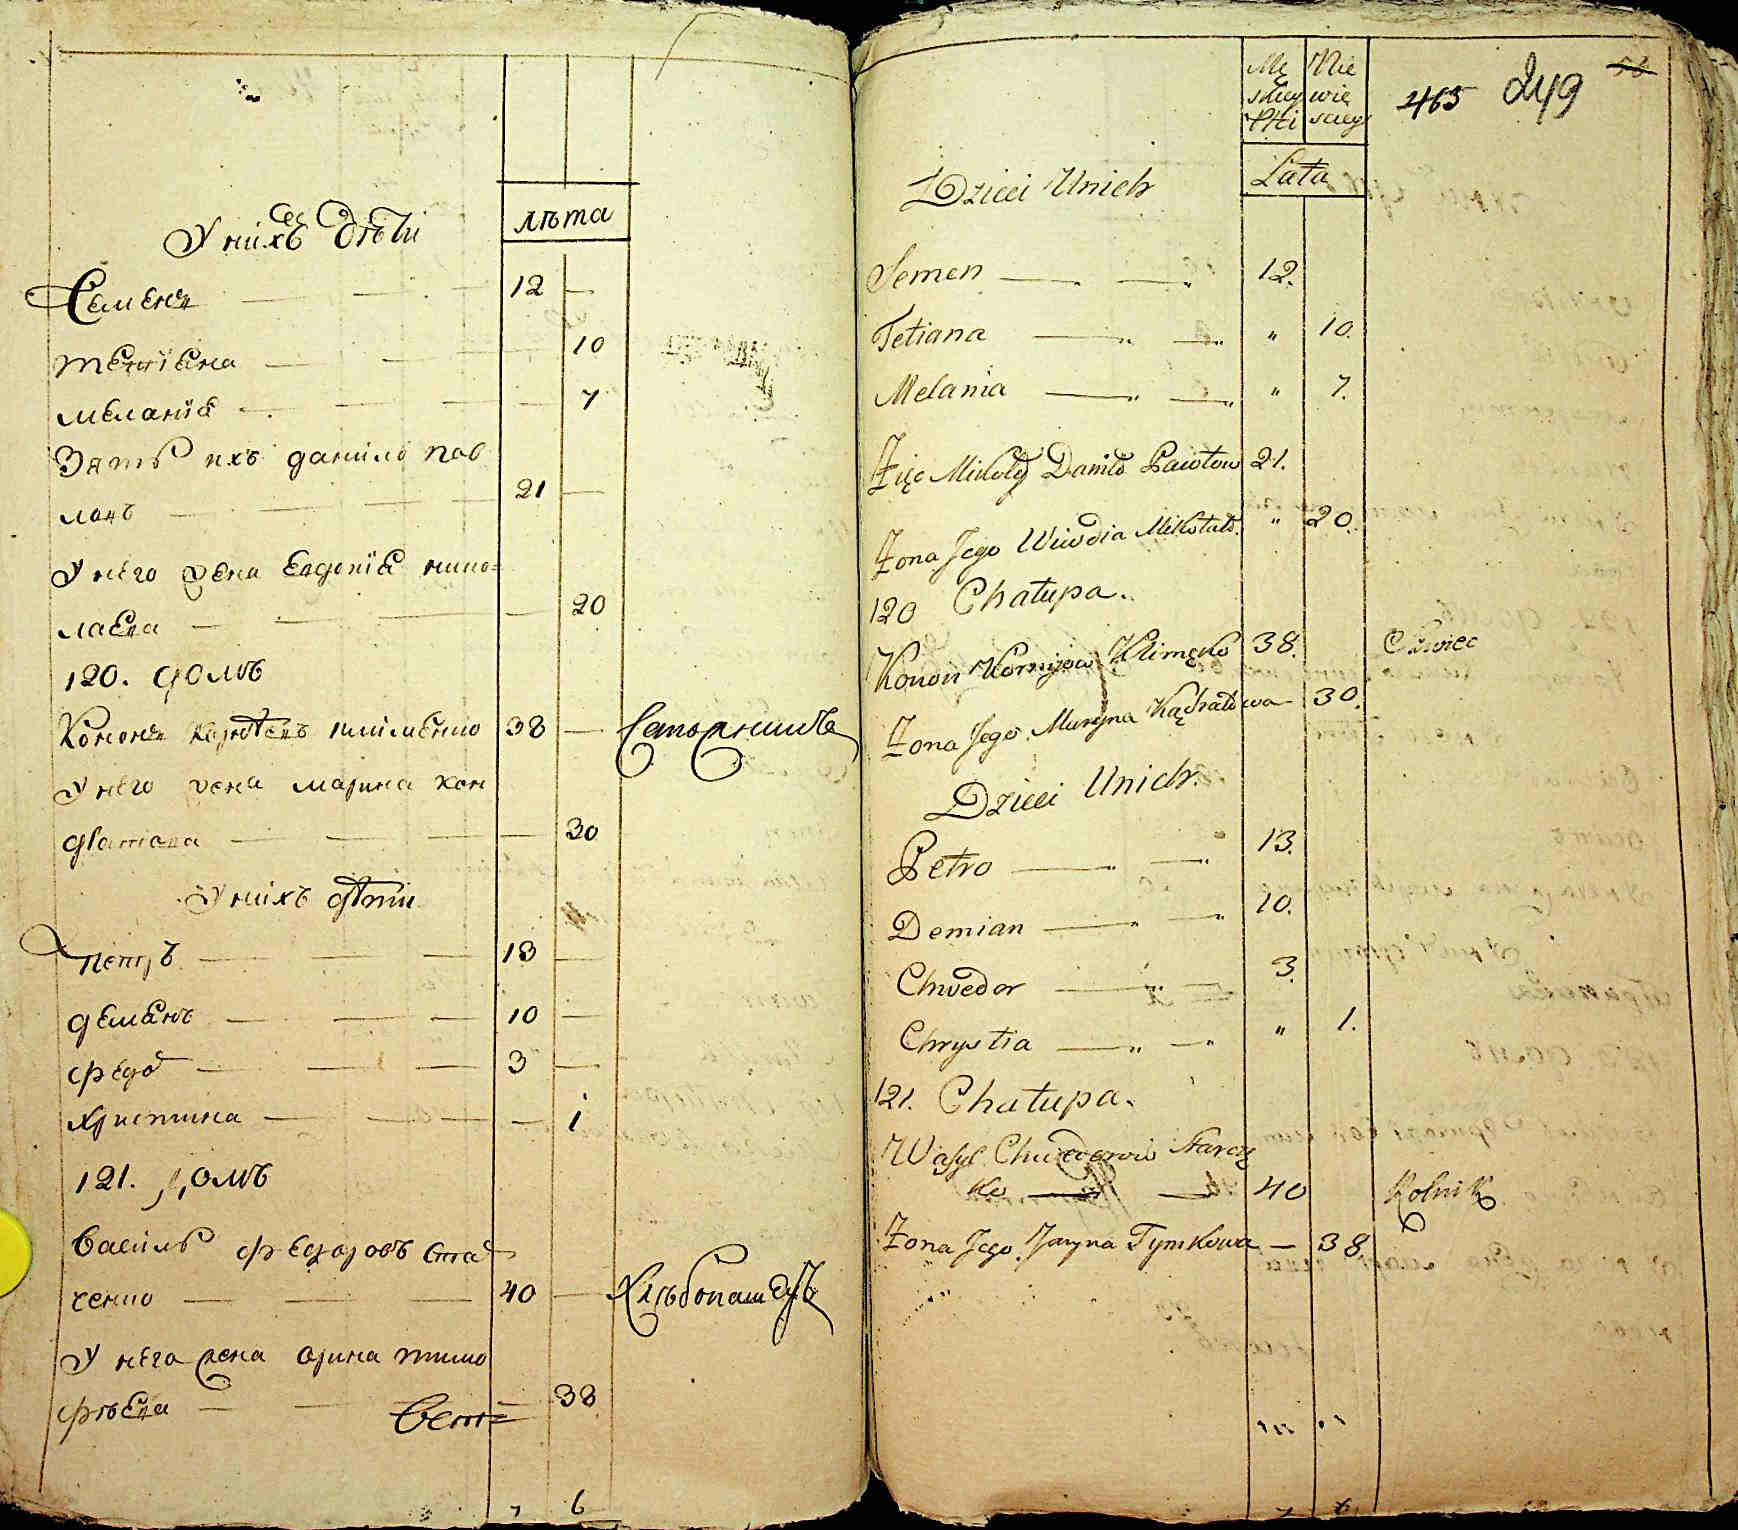 лѣта
У нихъ дѣти
Семенъ 12
татиана 10
меланиѣ 7
Зять ихъ данило пав
ловъ 21
У него жена Евдокиѣ нико=
лаева 20
120. домъ
Кононъ корнѣевъ клименко 38 Сапожникъ
У него жена марина кон
дратова 30
У нихъ дѣти
петръ 13
демѣнъ 10
федоръ 3
христина 1
121. домъ
Василь федоровъ стар
ченко 40 Хлѣбопашецъ
У него жена орина тимо
фѣева 38
7 6
Mę Nie
skiey wie
Płci sciey
465 249 56
Lata
Dzieci Unich
Semen 12.
Tetiana " 10.
Melania " 7.
Zięć Mikoły Daniło Pawłow 21.
Żona Jego Wiwdia Mikołaio. " 20.
120 Chałupa.
Konon Kornijow Klimęko 38. Szwiec
Żona Jego Maryna Kądratowa 30.
Dzieci Unich.
Petro 13.
Demian 10.
Chwedor 3.
Chrystia " 1.
121. Chałupa.
Wasyl Chwedorow Starcz
ko 40 Rolnik
Żona Jego Jaryna Tymkowa 38.
7 6